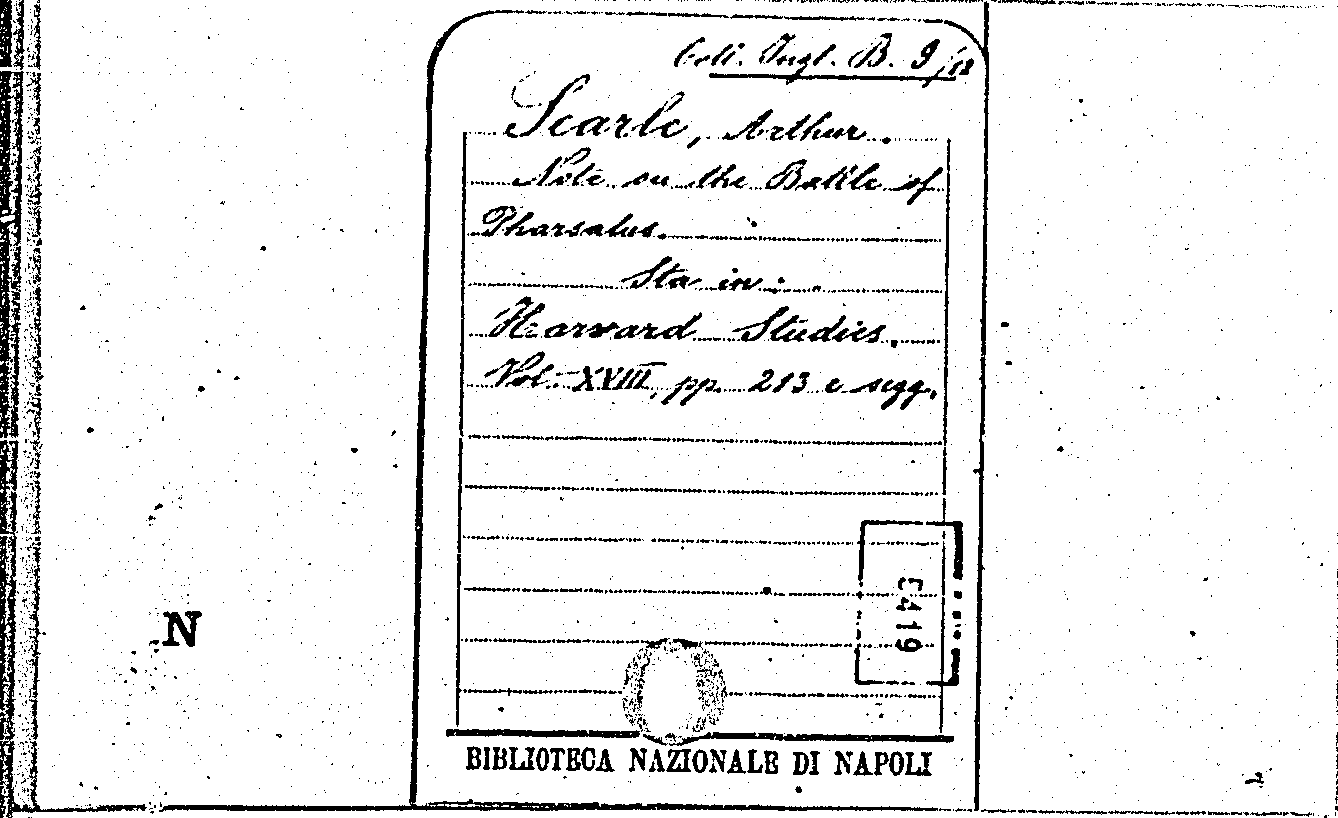 Coll. Ingl. B. 9/18
Searle, Arthur.
Note on the Battle of
Pharsalus.
Sta in:
Harvard Studies.
Vol. XVIII, pp. 213 e segg.
E419
N
BIBLIOTECA NAZIONALE DI NAPOLI